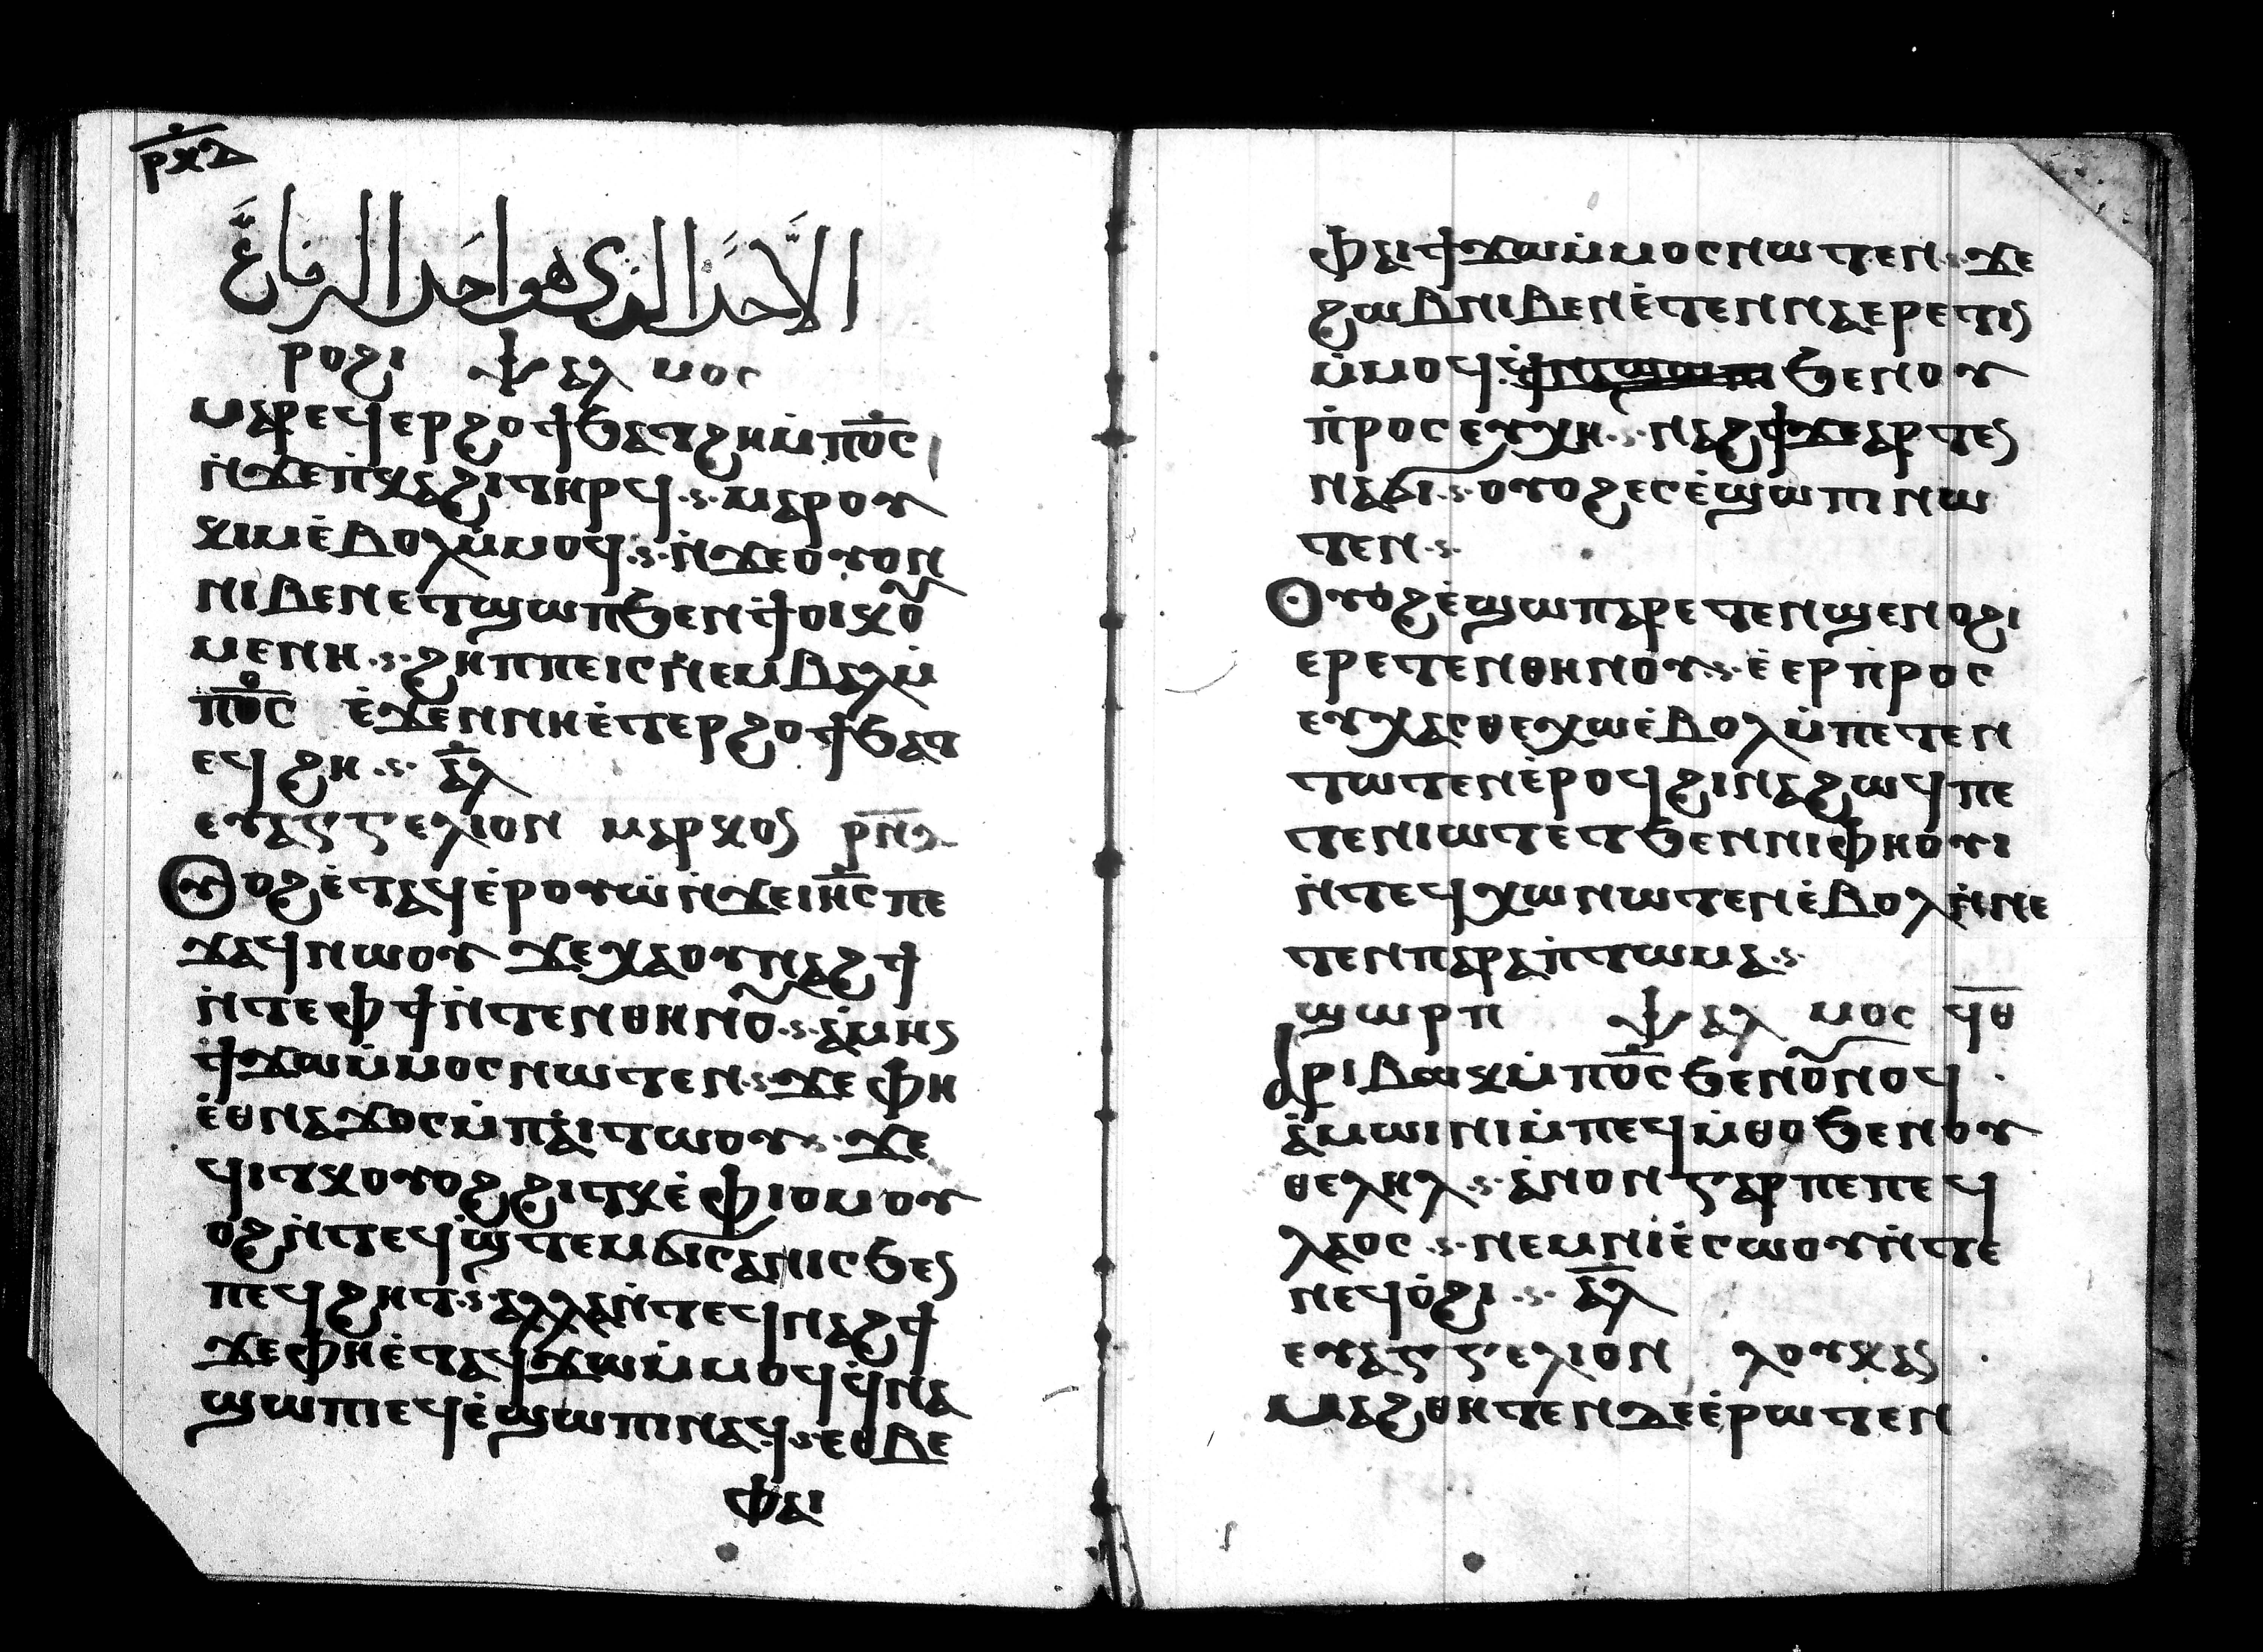 ⲣⲝⲇ
الأحد الذي هو احد الرفاع
ⲣⲟϩⲓ ⲯⲁⲗⲙⲟⲥ
ⲙⲁⲣⲉϥⲉⲣϩⲟϯϧⲁⲧϩⲏⲙ̀ⲡ⳪
ⲛ̀ϫⲉⲡ̀ⲕⲁϩⲓⲧⲏⲣϥ ⲙⲁⲣⲟⲩ
ⲕⲓⲙⲉ̀ⲃⲟⲗⲙ̀ⲙⲟϥ ⲛ̀ϫⲉⲟⲩⲟⲛ
ⲛⲓⲃⲉⲛⲉⲧϣⲱⲡϧⲉⲛϯⲟⲓⲕⲟⲩ
ⲙⲉⲛⲏ ϩⲏⲡⲡⲉⲓⲥⲛⲉⲛⲃⲁⲗⲙ̀
ⲡ⳪ ⲉ̀ϫⲉⲛⲛⲏⲉ̀ⲧⲉⲣϩⲟϯϧⲁⲧ
ⲉϥϩⲏ ⲁ̅ⲗ̅
ⲉⲩⲁⲅⲅⲉⲗⲓⲟⲛ ⲙⲁⲣⲕⲟⲥ ⲣⲛⲁ
Ⲟⲩⲟϩⲉ̀ⲧⲁϥⲉ̀ⲣⲟⲩⲱ̀ⲛ̀ϫⲉⲓⲏ̅ⲥ̅ⲡⲉ
ϫⲁϥⲛⲱⲟⲩ ϫⲉⲭⲁⲟⲩⲛⲁϩϯ
ⲛ̀ⲧⲉⲫϯⲛ̀ⲧⲉⲛⲑⲏⲛⲟⲩ ⲁ̀ⲙⲏⲛ
ϯϫⲱⲙ̀ⲙⲟⲥⲛⲱⲧⲉⲛ ϫⲉⲫⲏ
ⲉ̀ⲑⲛⲁϫⲟⲥⲙ̀ⲡⲁⲓⲧⲱⲟⲩ ϫⲉ
ϥⲓⲧⲕⲟⲩⲟϩϩⲓⲧⲕⲉ̀ⲫⲓⲟⲙⲟⲩ
ⲟϩⲛ̀ⲧⲉϥϣ̀ⲧⲉⲙϭⲓⲥⲁⲛⲓⲥϧⲉⲛ
ⲡⲉϥϩⲏⲧ ⲁⲗⲗⲁⲛ̀ⲧⲉϥⲛⲁϩϯ
ϫⲉⲫⲏⲉ̀ⲧⲁϥϫⲱⲙ̀ⲙⲟϥϥ̀ⲛⲁ
ϣⲱⲡⲓⲉϥⲉ̀ϣⲱⲡⲓⲛⲁϥ ⲉⲑⲃⲉ
ⲫⲁⲓ
ⲫⲁⲓϯϫⲱⲙ̀ⲙⲟⲥⲛⲱⲧⲉⲛ ϫⲉ
ϩⲱⲃⲛⲓⲃⲉⲛⲉ̀ⲧⲉⲛⲛⲁⲉⲣⲉⲧⲓⲛ
ⲙ̀ⲙⲟϥ ϧⲉⲛⲟⲩ
ⲡ̀ⲣⲟⲥⲉⲩⲭⲏ ⲛⲁϩϯϫⲉⲁⲣⲧⲉⲛ
ⲛⲁϭⲓ ⲟⲩⲟϩⲉⲥⲉ̀ϣⲱⲡⲓⲛⲱ
ⲧⲉⲛ
Ⲟⲩⲟϩⲉ̀ϣⲱⲡⲁⲣⲉⲧⲉⲛϣⲉⲛⲟϩⲓ
ⲉⲣⲉⲧⲉⲛⲑⲏⲛⲟⲩ ⲉ̀ⲉⲣⲡ̀ⲣⲟⲥ
ⲉⲩⲭⲁⲥⲑⲉⲭⲱⲉ̀ⲃⲟⲗⲙ̀ⲡⲉⲧⲉⲛ
ⲧⲱⲧⲉⲛⲉ̀ⲣⲟϥϩⲓⲛⲁϩⲱϥⲡⲉ
ⲧⲉⲛⲓⲱⲧⲉⲧϧⲉⲛⲛⲓⲫⲏⲟⲩⲓ
ⲛ̀ⲧⲉϥⲭⲱⲛⲱⲧⲉⲛⲉ̀ⲃⲟⲗⲛ̀ⲛⲉ
ⲧⲉⲛⲡⲁⲣⲁⲡ̀ⲧⲱⲙⲁ
ϣⲱⲣⲡ ⲯⲁⲗⲙⲟⲥ ϥⲑ
Ⲁⲣⲓⲃⲱⲕⲙ̀ⲡ⳪ϧⲉⲛⲟⲩⲛⲟϥ
ⲁ̀ⲙⲱⲓⲛⲓⲙ̀ⲡⲉϥⲙ̀ⲑⲟϧⲉⲛⲟⲩ
ⲑⲉⲗⲏⲗ ⲁ̀ⲛⲟⲛⲅⲁⲣⲡⲉⲡⲉϥ
ⲗⲁⲟⲥ ⲛⲉⲙⲛⲓⲉ̀ⲥⲱⲟⲩⲛ̀ⲧⲉ
ⲛⲉϥⲟ̀ϩⲓ ⲁ̅ⲗ̅
ⲉⲩⲁⲅⲅⲉⲗⲓⲟⲛ ⲗⲟⲩⲕⲁⲛ
ⲙⲁϩⲑⲏⲧⲉⲛⲇⲉⲉ̀ⲣⲱⲧⲉⲛ